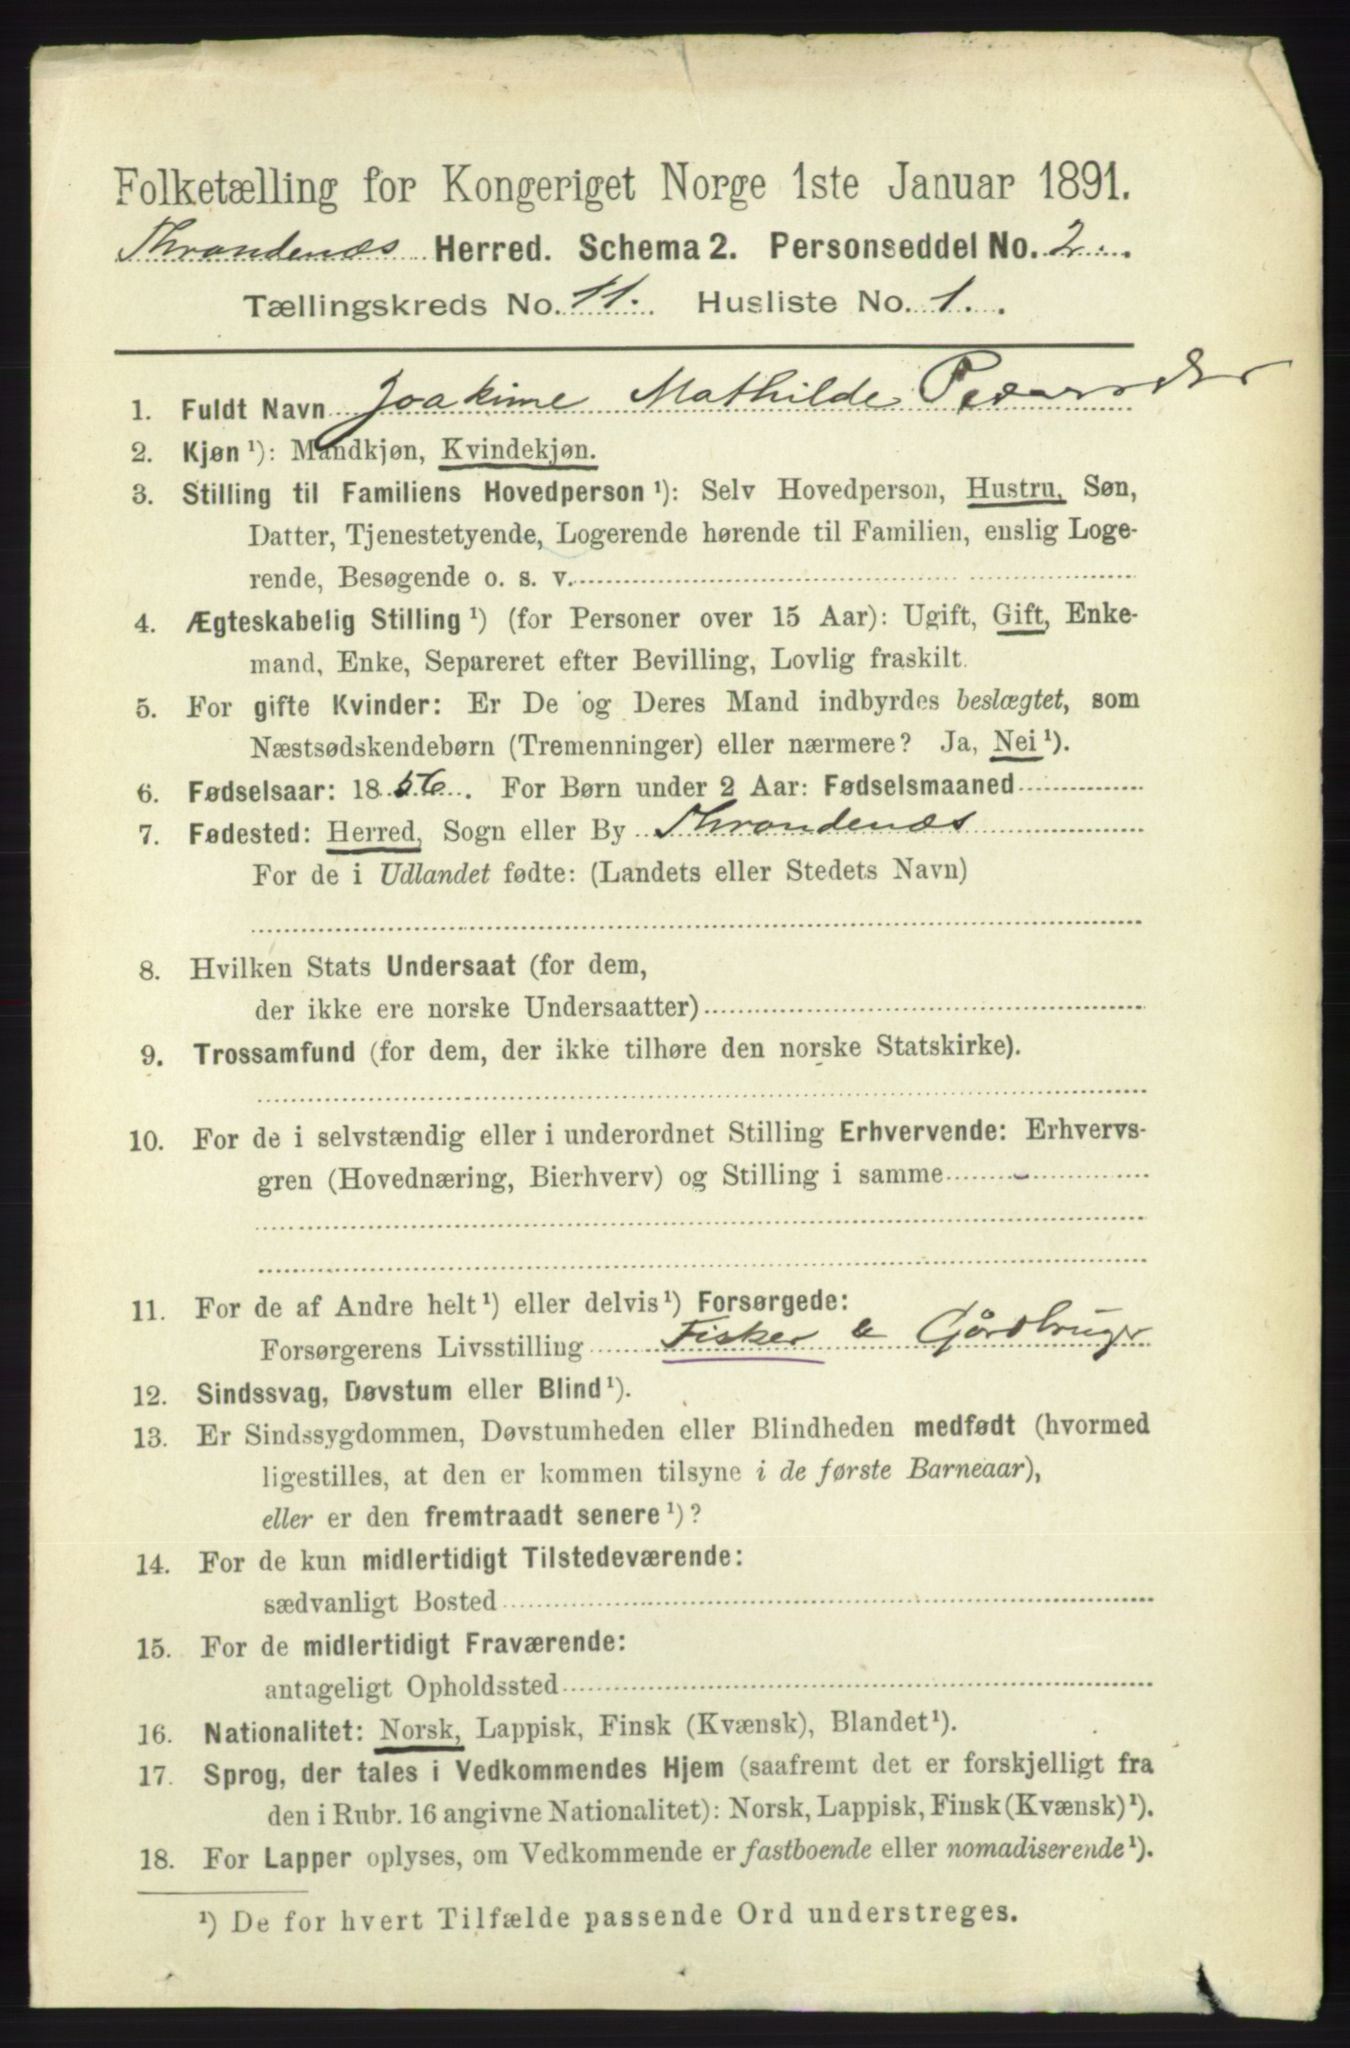 Folketælling for Kongeriget Norge 1ste Januar 1891.
Throndenæs Herred. Schema 2. Personseddel No. 2.
Tællingskreds No. 11. Husliste No. 1.
1. Fuldt Navn Joakime Mathilde
2. Kjøn ¹): Mandkjøn, Kvindekjøn.
3. Stilling til Familiens Hovedperson ¹): Selv Hovedperson, Hustru, Søn,
Datter, Tjenestetyende, Logerende hørende til Familien, enslig Loge-
rende, Besøgende o. s. v.
4. Ægteskabelig Stilling ¹) (for Personer over 15 Aar): Ugift, Gift, Enke-
mand, Enke, Separeret efter Bevilling, Lovlig fraskilt.
5. For gifte Kvinder: Er De og Deres Mand indbyrdes beslægtet, som
Næstsødskendebørn (Tremenninger) eller nærmere? Ja, Nei ¹).
6. Fødselsaar: 1856. For Børn under 2 Aar: Fødselsmaaned
7. Fødested: Herred, Sogn eller By Throndenæs
For de i Udlandet fødte: (Landets eller Stedets Navn)
8. Hvilken Stats Undersaat (for dem,
der ikke ere norske Undersaatter)
9. Trossamfund (for dem, der ikke tilhøre den norske Statskirke).
10. For de i selvstændig eller i underordnet Stilling Erhvervende: Erhvervs-
gren (Hovednæring, Bierhverv) og Stilling i samme
11. For de af Andre helt ¹) eller delvis ¹) Forsørgede:
Forsørgerens Livsstilling Fisker & Gårdbruger
12. Sindssvag, Døvstum eller Blind ¹).
13. Er Sindssygdommen, Døvstumheden eller Blindheden medfødt (hvormed
ligestilles, at den er kommen tilsyne i de første Barneaar),
eller er den fremtraadt senere ¹)?
14. For de kun midlertidigt Tilstedeværende:
sædvanligt Bosted
15. For de midlertidigt Fraværende:
antageligt Opholdssted
16. Nationalitet: Norsk, Lappisk, Finsk (Kvænsk), Blandet ¹).
17. Sprog, der tales i Vedkommendes Hjem (saafremt det er forskjelligt fra
den i Rubr. 16 angivne Nationalitet): Norsk, Lappisk, Finsk (Kvænsk) ¹).
18. For Lapper oplyses, om Vedkommende er fastboende eller nomadiserende ¹).
¹) De for hvert Tilfælde passende Ord understreges.